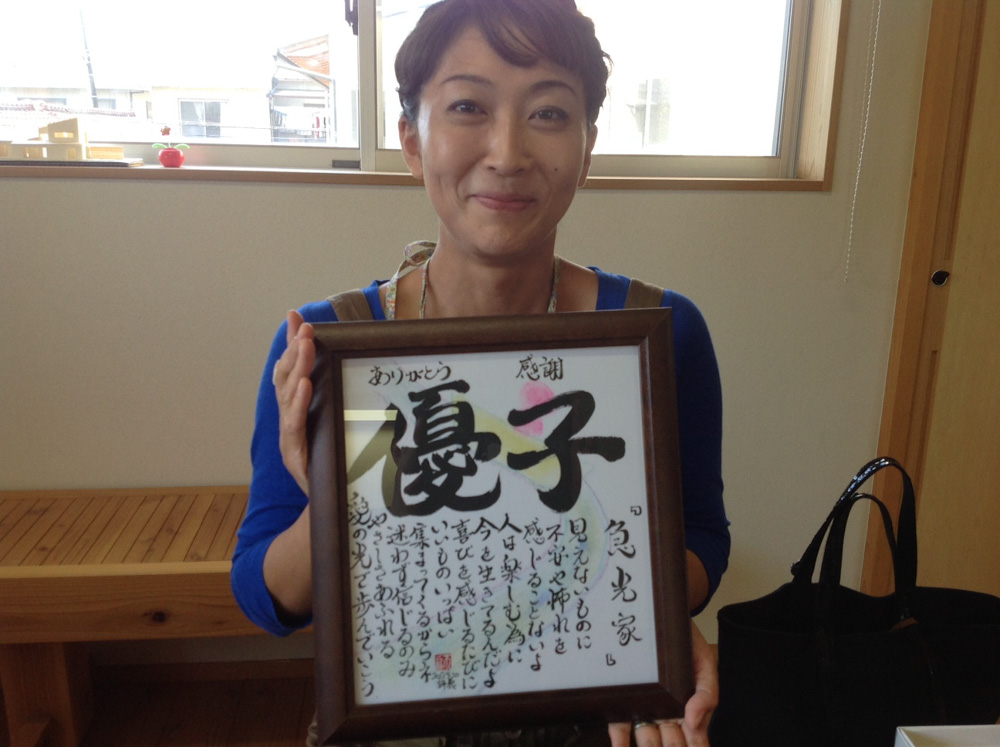 ありがとう 感謝
優子
『急光家』
見えないものに
不安や怖れを
感じることないよ
人は楽しむ為に
今を生きてるんだよ
喜びを感じるたびに
いいものいっぱい
集まってくるからネ
迷わず信じるのみ
やさしさあふれる
愛の光で歩んでいこう